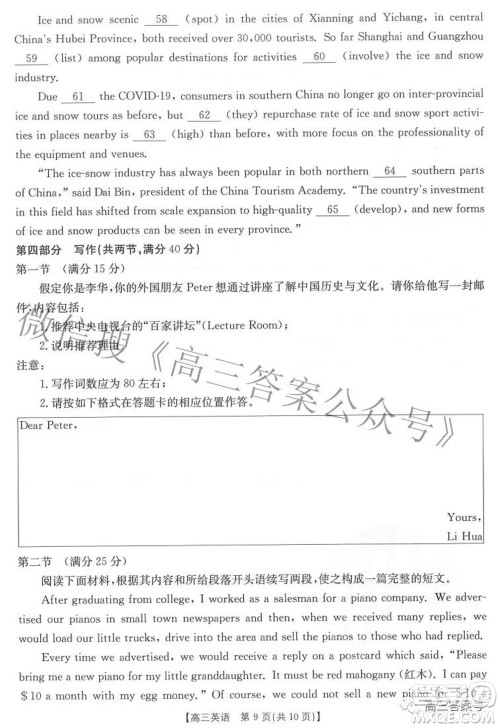 Ice and snow scenic 58 (spot) in the cities of Xianning and Yichang, in central
China's Hubei Province, both received over 30,000 tourists. So far Shanghai and Guangzhou
59 (list) among popular destinations for activities 60 (involve) the ice and snow
industry.
Due 61 the COVID-19, consumers in southern China no longer go on inter-provincial
ice and snow tours as before, but 62 (they) repurchase rate of ice and snow sport activi-
ties in places nearby is 63 (high) than before, with more focus on the professionality of
the equipment and venues.
"The ice-snow industry has always been popular in both northern 64 southern parts
of China," said Dai Bin, president of the China Tourism Academy. "The country's investment
in this field has shifted from scale expansion to high-quality 65 (develop), and new forms
of ice and snow products can be seen in every province."
第四部分 写作(共两节,满分 40 分)
第一节 (满分 15 分)
假定你是李华,你的外国朋友 Peter 想通过讲座了解中国历史与文化。请你给他写一封邮
件,内容包括:
1.推荐中央电视台的"百家讲坛"(Lecture Room);
2.说明推荐理由。
注意:
1.写作词数应为 80 左右;
2.请按如下格式在答题卡的相应位置作答。
Dear Peter,
Yours,
Li Hua
微信搜《高三答案公众号》
第二节 (满分 25 分)
阅读下面材料,根据其内容和所给段落开头语续写两段,使之构成一篇完整的短文。
After graduating from college, I worked as a salesman for a piano company. We adver-
tised our pianos in small town newspapers and then, when we received many replies, we
would load our little trucks, drive into the area and sell the pianos to those who had replied.
Every time we advertised, we would receive a reply on a postcard which said, "Please
bring me a new piano for my little granddaughter. It must be red mahogany (红木). I can pay
$10 a month with my egg money." Of course, we could not sell a new piano for $10 a
高三英语 第 9 页(共 10 页)
高三答案号